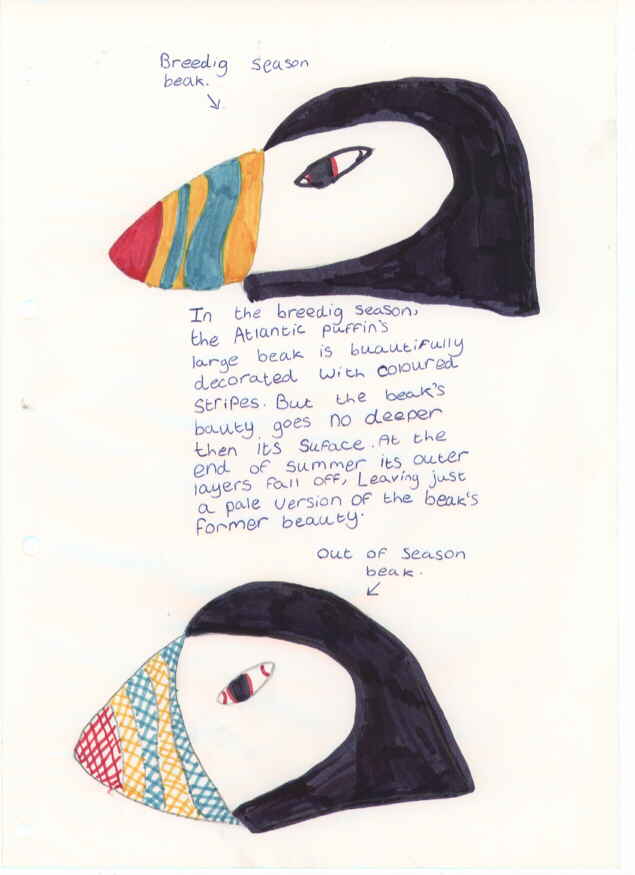 Breedig season
beak.
In the breedig season,
the Atlantic puffin's
large beak is buautifully
decorated with coloured
stripes. But the beak's
bauty goes no deeper
then its suface. At the
end of summer its outer
layers fall off, Leaving just
a pale version of the beak's
former beauty.
out of season
beak.